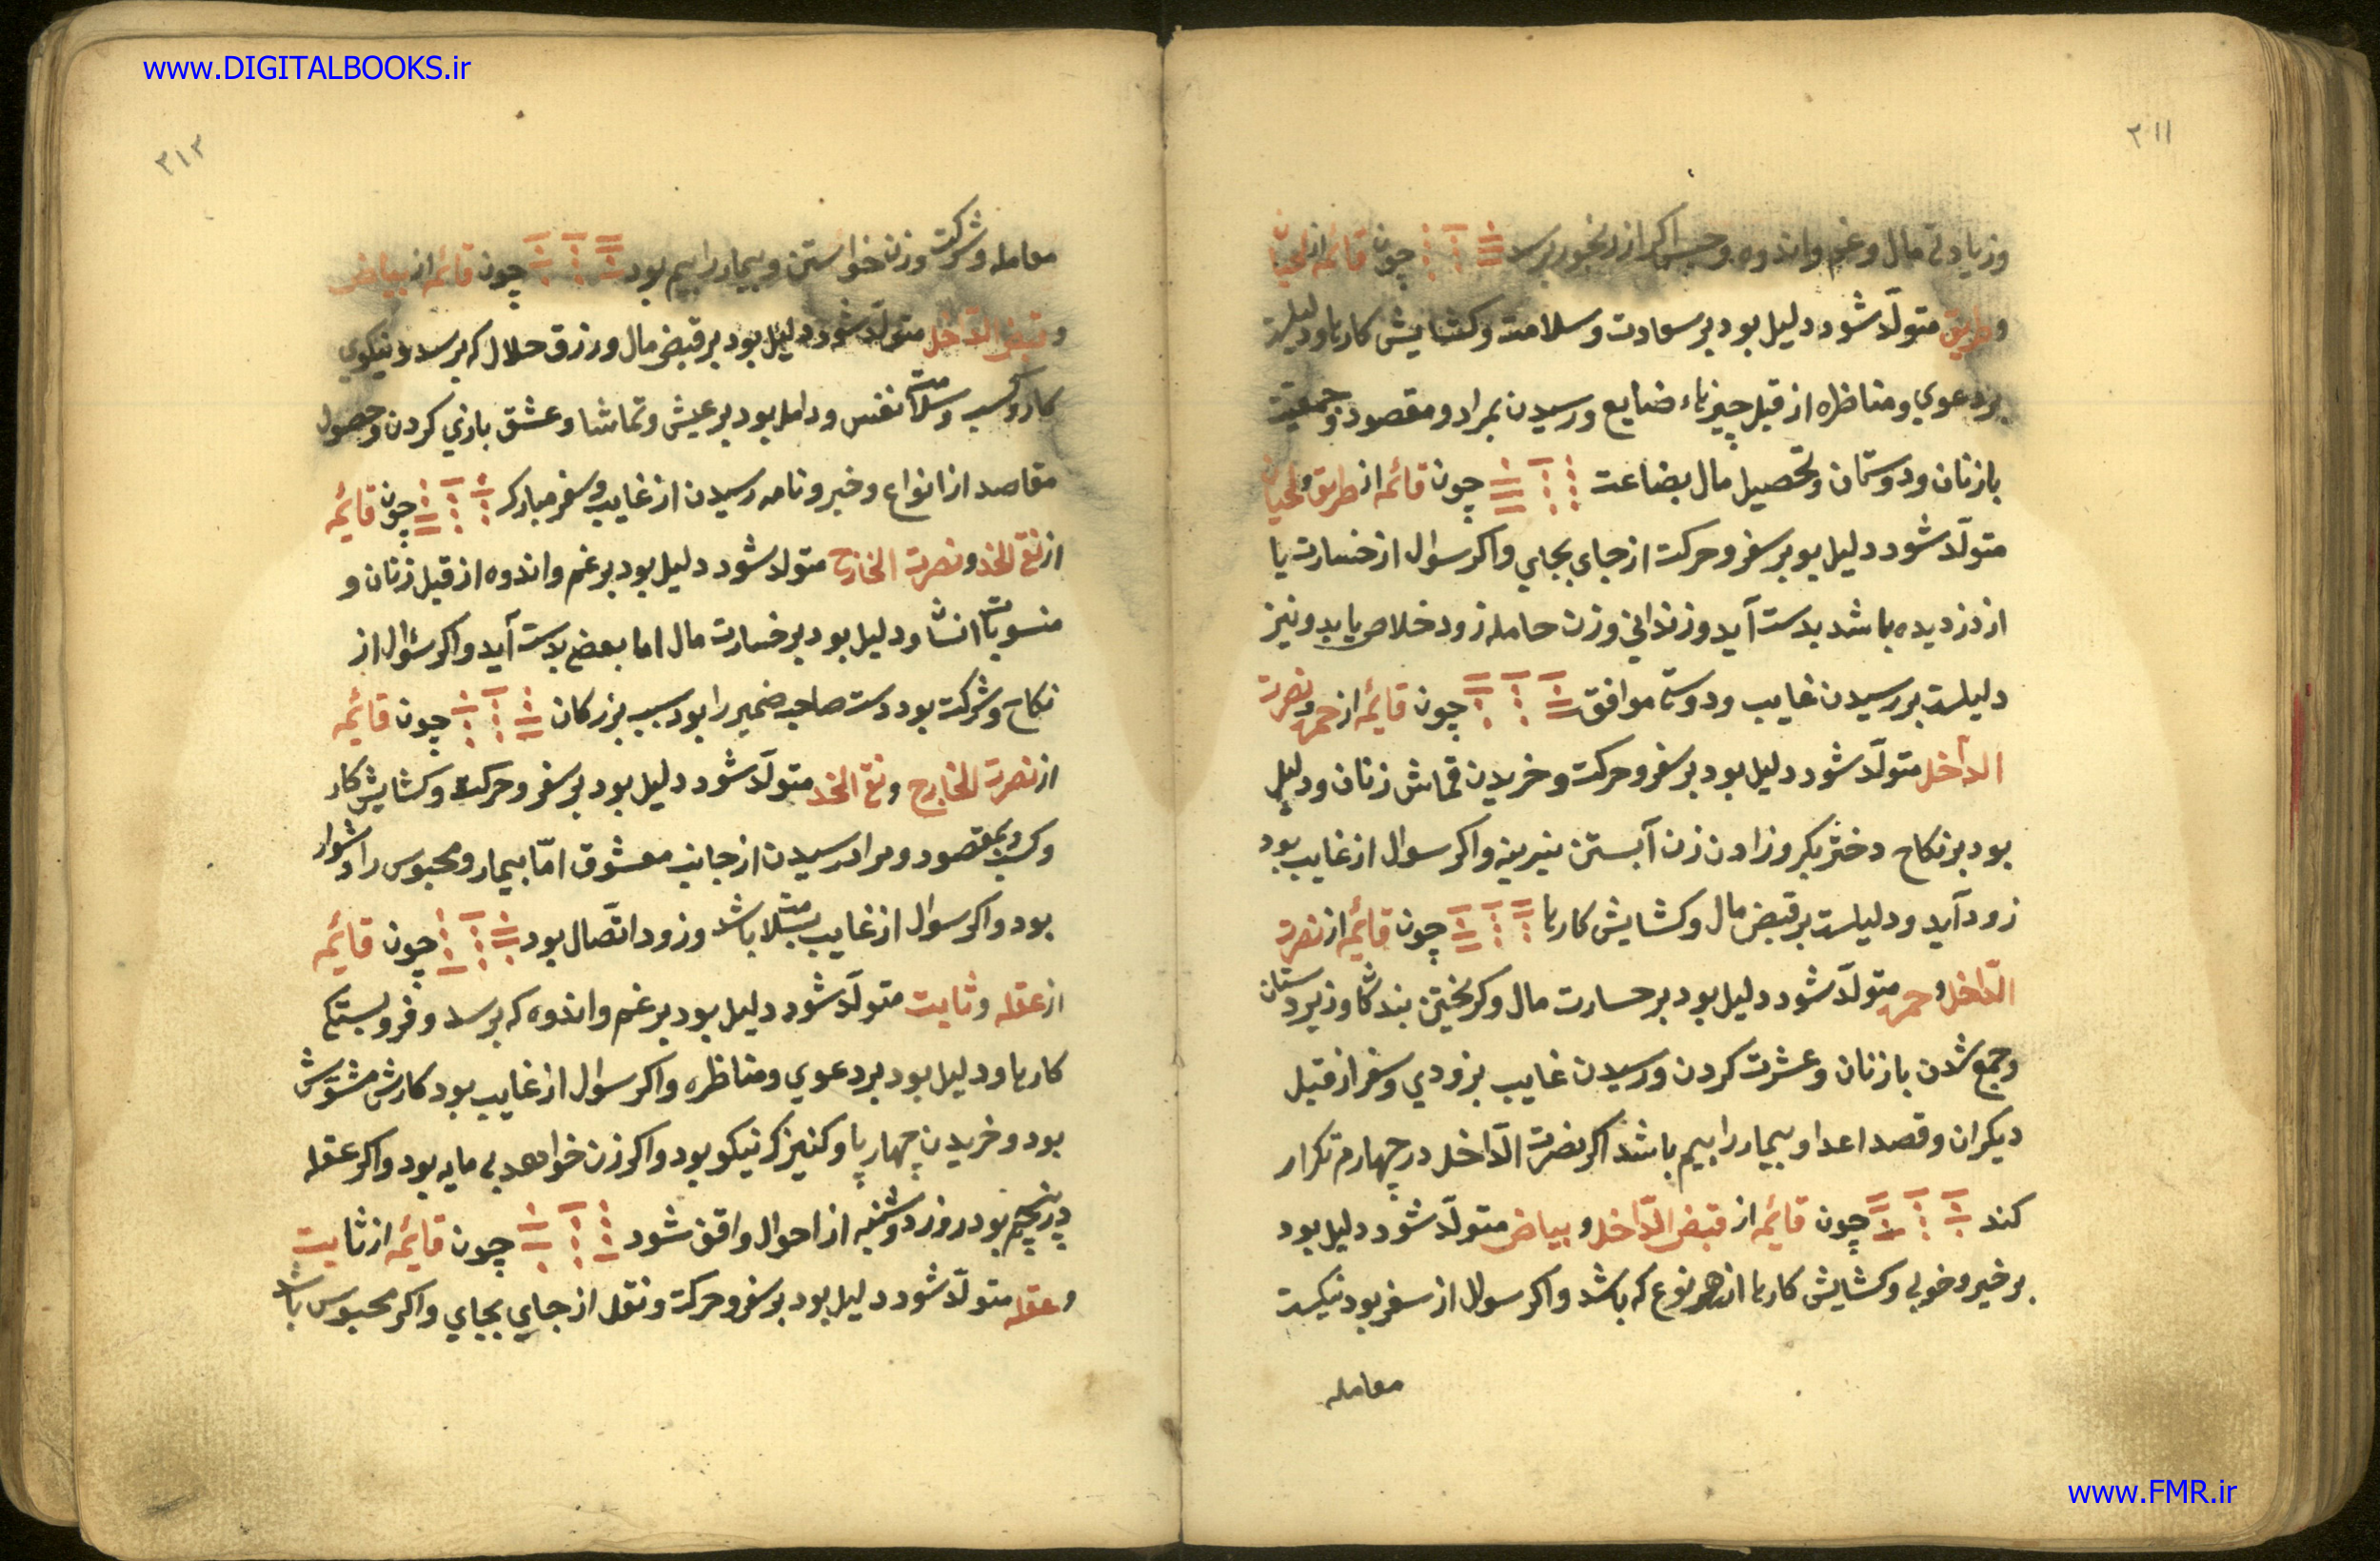 www.DIGITALBOOKS.ir
٣١١
وزیادتی مال وغم واندوه چون قائمه از لحیان
وطریق متولّد شود دلیل بود بر سعادت وسلامت وکشایش کارها ودلیلست
بر دعوي ومناظره از قبل چیزهاء ضایع ورسیدن بمراد ومقصود وجمعیت
با زنان ودوستان وتحصیل مال بضاعت چون قائمه از طریق ولحیان
متولّد شود دلیل بود بر سفر وحرکت از جای بجاي واکر سوال از خسارت یا
از دزدیده باشد بدست آید وزندانی وزن حامله زود خلاص یابد ونیز
دلیلست بر رسیدن غایب ودوستی موافق چون قائمه از حمره ونصرت
الداخل متولّد شود دلیل بود بر سفر وحرکت وخریدن قماش زنان ودلیل
بود بر نکاح دختر بکر وزادن زن آبستن نیرینه واکر سوال از غایب بود
زود آید ودلیلست بر قبض مال وکشایش کارها چون قائمه از نصرت
الدّاخل وحمره متولّد شود دلیل بود بر خسارت مال وکریختن بندکان وزیردستان
وجمع شدن با زنان وعشرت کردن ورسیدن غایب بزودي وسفر از قبل
دیکران وقصد اعدا وبیمار را بیم باشد اکر نصرت الدّاخل در چهارم تکرار
کند چون قائمه از قبض الدّاخل وبیاض متولّد شود دلیل بود
بر خیر وخوبی وکشایش کارها از هر نوع که باشد واکر سوال از سفر بود نیکست
معامله
www.FMR.ir
٣١٢
معامله وشرکت وزن خواستن وبیمار را بیم بود چون قائمه از بیاض
وقبض الدّاخل متولّد شود دلیل بود بر قبض مال ورزق حلال که برسد ونیکوي
کار وکسب وسلامت نفس ودلیل بود بر عیش وتماشا وعشق بازي کردن وحصول
مقاصد از انواع وخبر ونامه رسیدن از غایب وسفر مبارک چون قائمه
از نقی الخد ونصرت الخارج متولد شود دلیل بود بر غم واندوه از قبل زنان و
منسوبات ودلیل بود بر خسارت مال اما بعضی بدست آید واکر سئوال از
نکاح وشرکت بود دست صاحب ضمیر را بود سبب بزرکان چون قائمه
از نصرت الخارج ونقی الخد متولّد شود دلیل بود بر سفر وحرکت وکشایش کار
وکسب وبمقصود ومراد رسیدن از جانب معشوق امّا بیمار ومحبوس را دشوار
بود واکر سوال از غایب بسلامت باشد وزود اتّصال بود چون قائمه
از عقله وثابت متولّد شود دلیل بود بر غم واندوه که برسد وفروبستکی
کارها ودلیل بود بر دعوي ومناظره واکر سوال از غایب بود کارش مشوّش
بود وخریدن چهارپا وکنیزک نیکو بود واکر زن خواهد بی مایه بود واکر عقله
در پنجم بود روز دوشنبه از احوال واقف شود چون قائمه از ثابت
وعقله متولّد شود دلیل بود بر سفر وحرکت ونقل از جاي بجاي واکر محبوس باشد